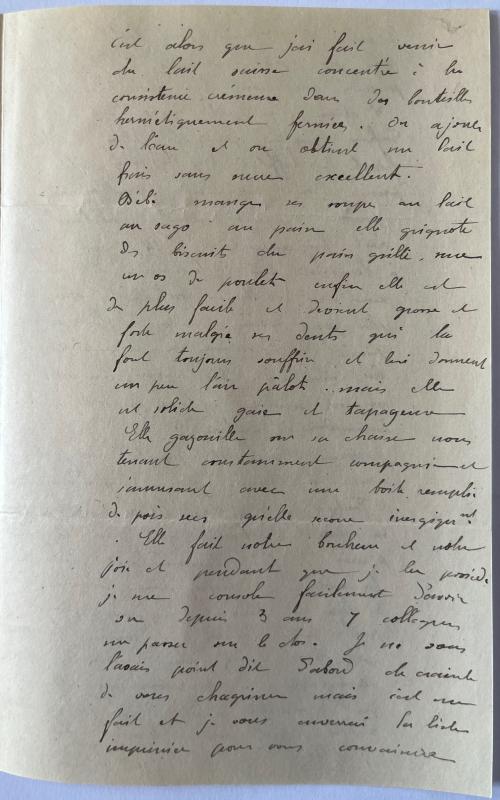 C'est alors que j'ai fait venir
du lait suisse concentré à la
consistence crémeuse dans des bouteilles
hermétiquement fermées. On ajoute
de l'eau et on obtient un lait
frais sans sucre excellent.
Bébé mange ses soupes au lait
au sago au pain elle grignote
des biscuits du pain grillé, suce
un os de poulet enfin elle est
de plus facile et devient grosse et
forte malgré ses dents qui la
font toujours souffrir et lui donnent
un peu l'air pâlot. mais elle
est solide gaie et tapageuse
Elle gazouille sur sa chaise nous
tenant constamment compagnie et
s'amusant avec une boite remplie
de pois secs qu'elle secoue energiqmnt
. Elle fait notre bonheur et notre
joie et pendant que je la possède
je me console facilement d'avoir
vu depuis 3 ans 7 collègues
me passer sur le dos. Je ne vous
l'avais point dit d'abord de crainte
de vous chagriner mais c'est un
fait et je vous enverrai la liste
imprimée pour vous convaincre